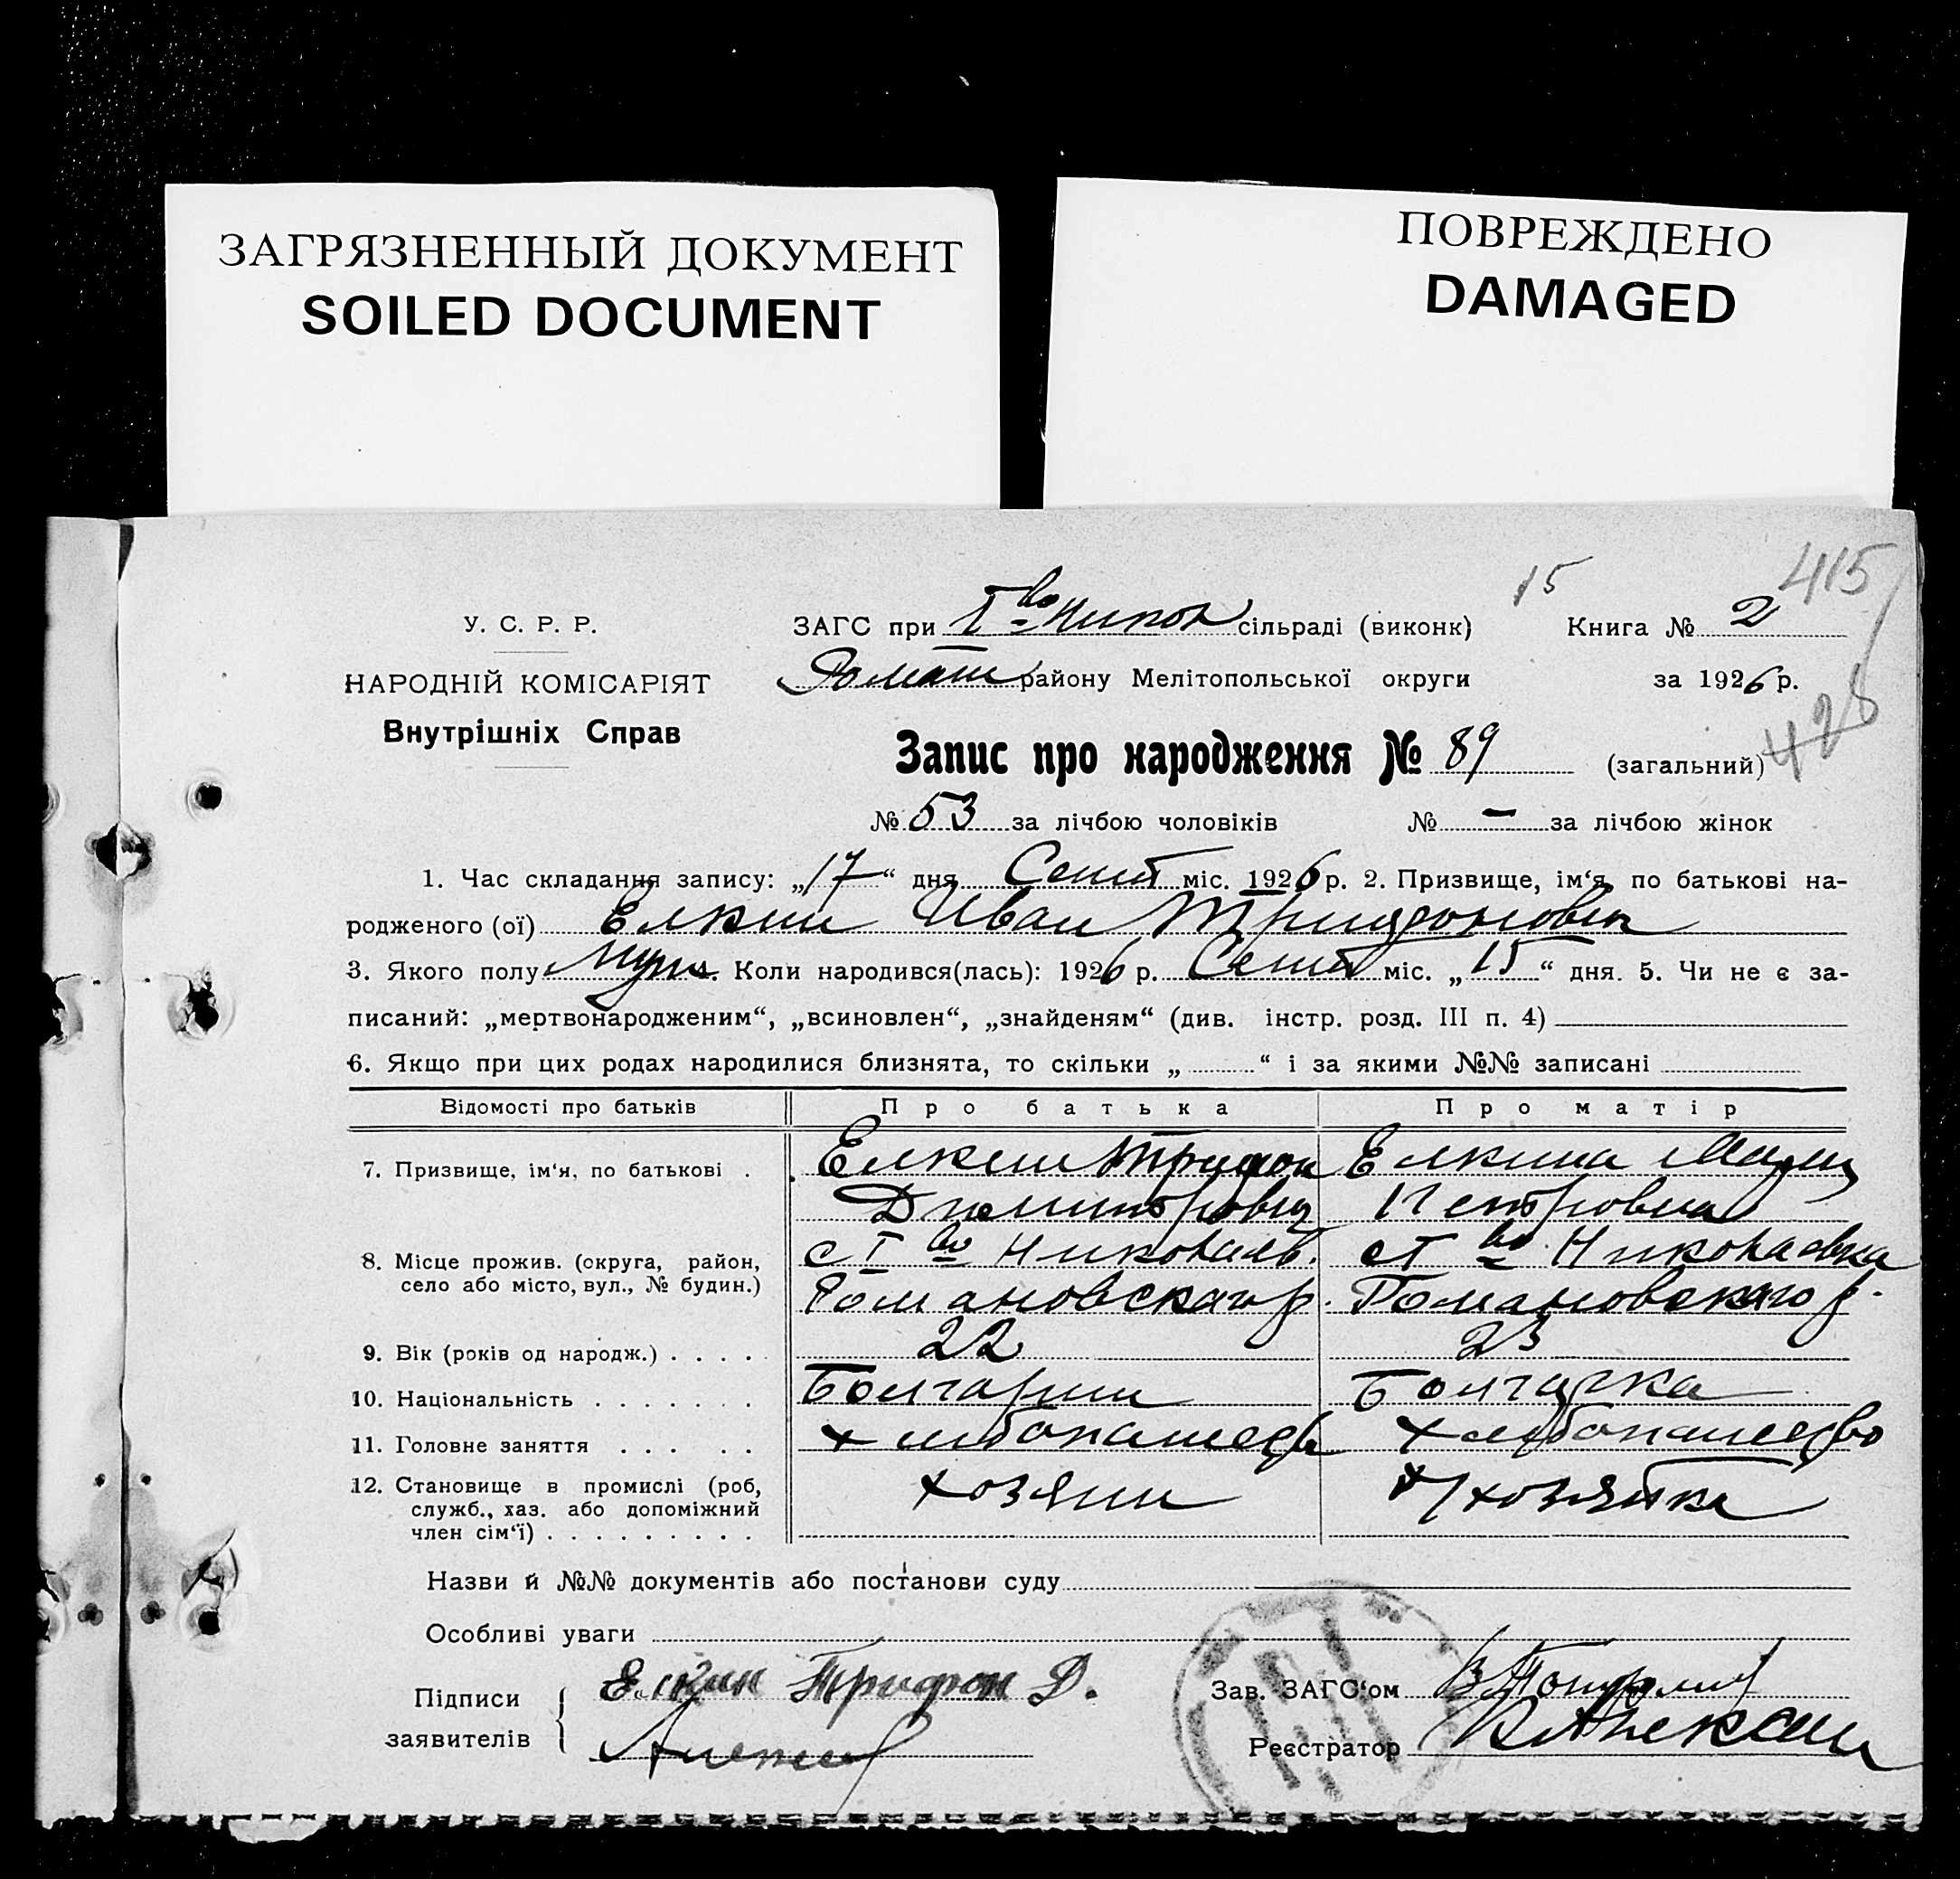 ЗАГРЯЗНЕННЫЙ ДОКУМЕНТ
SOILED DOCUMENT
ПОВРЕЖДЕНО
DAMAGED
415
15
428
У. С. Р. Р.
НАРОДНІЙ КОМІСАРІЯТ
Внутрішніх Справ
ЗАГС при І во Никол сільраді (виконк) Книга № 2
Роман району Мелітопольської округи за 1926 р.
Запис про народження № 89 (загальний)
№ 53 за лічбою чоловіків № — за лічбою жінок
1. Час складання запису: „17“ дня Сент міс. 1926 р. 2. Призвище, ім‘я, по батькові на-
родженого (ої) Елкин Иван Трифонович
3. Якого полу муж 4. Коли народився(лась): 1926 р. Сент міс. „15“ дня. 5. Чи не є за-
писаний: „мертвонародженим“, „всиновлен“, „знайденям“ (див. інстр. розд. III п. 4)
6. Якщо при цих родах народилися близнята, то скільки „ “ і за якими №№ записані
Відомості про батьків Про батька Про матір
7. Призвище, ім‘я, по батькові . Елкин Трифон Елкина Мария
Дмитрович Петровна
8. Місце прожив. (округа, район, с І во Николаев. с І во Николаевка
село або місто, вул., № будин.) Романовскаго р. Романовскаго р.
9. Вік (років од народж.) . . . . 22 23
10. Національність . . . . . . . Болгарин Болгарка
11. Головне заняття . . . . . хлибопашедв хлибопашедво
12. Становище в промислі (роб, хозяин хозяйка
служб., хаз. або допоміжний
член сім‘ї) . . . . . . . . .
Назви й №№ документів або постанови суду
Особливі уваги
Підписи Елкин Трифон Д. Зав. ЗАГС‘ом
заявителів Реєстратор